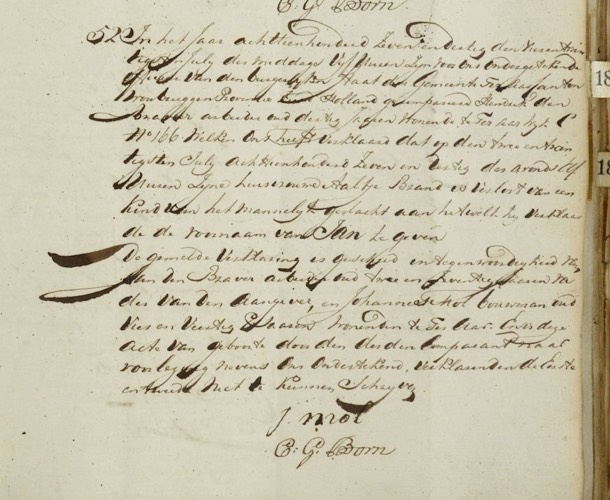 C. G. Born
52 In het Jaar achttienhonderd Zeven en dertig den Vieren twin
tigsten July des middags Vijf Uuren Zyn voor Ons Ondergetekende
van den burgerlyken Staat der Gemeente Ter Aar
Provincie Holland gecompareerd Hendrik den
Braver arbeider oud dertig Jaaren Wonende te Ter aar wyk C
No 166 Welken Ons heeft Verklaard dat op den twee en twin
tigsten July achttienhonderd Zeven en dertig des avonds elf
Uuren Zyne huisvrouwe Aaltje Brand is Verlost van een
Kind van het Mannelyk geslacht aan hetwelk hy Verklaar
de de voornaam van JAN te geven
De gemelde Verklaring is geschied in tegenwoordigheid van
den Braver arbeider oud twee en Zeventig Jaaren Va
der van den Aangever, en Johannes Mol bouwman oud
Vier en Veertig Jaaren Wonenden te Ter Aar. En is deze
acte van geboorte door den derden Comparant naar
voorlezing nevens Ons Ondertekend, Verklarende de Eerste
en tweede Niet te Kunnen Schryve
J. Mol
C. G. Born
18
18